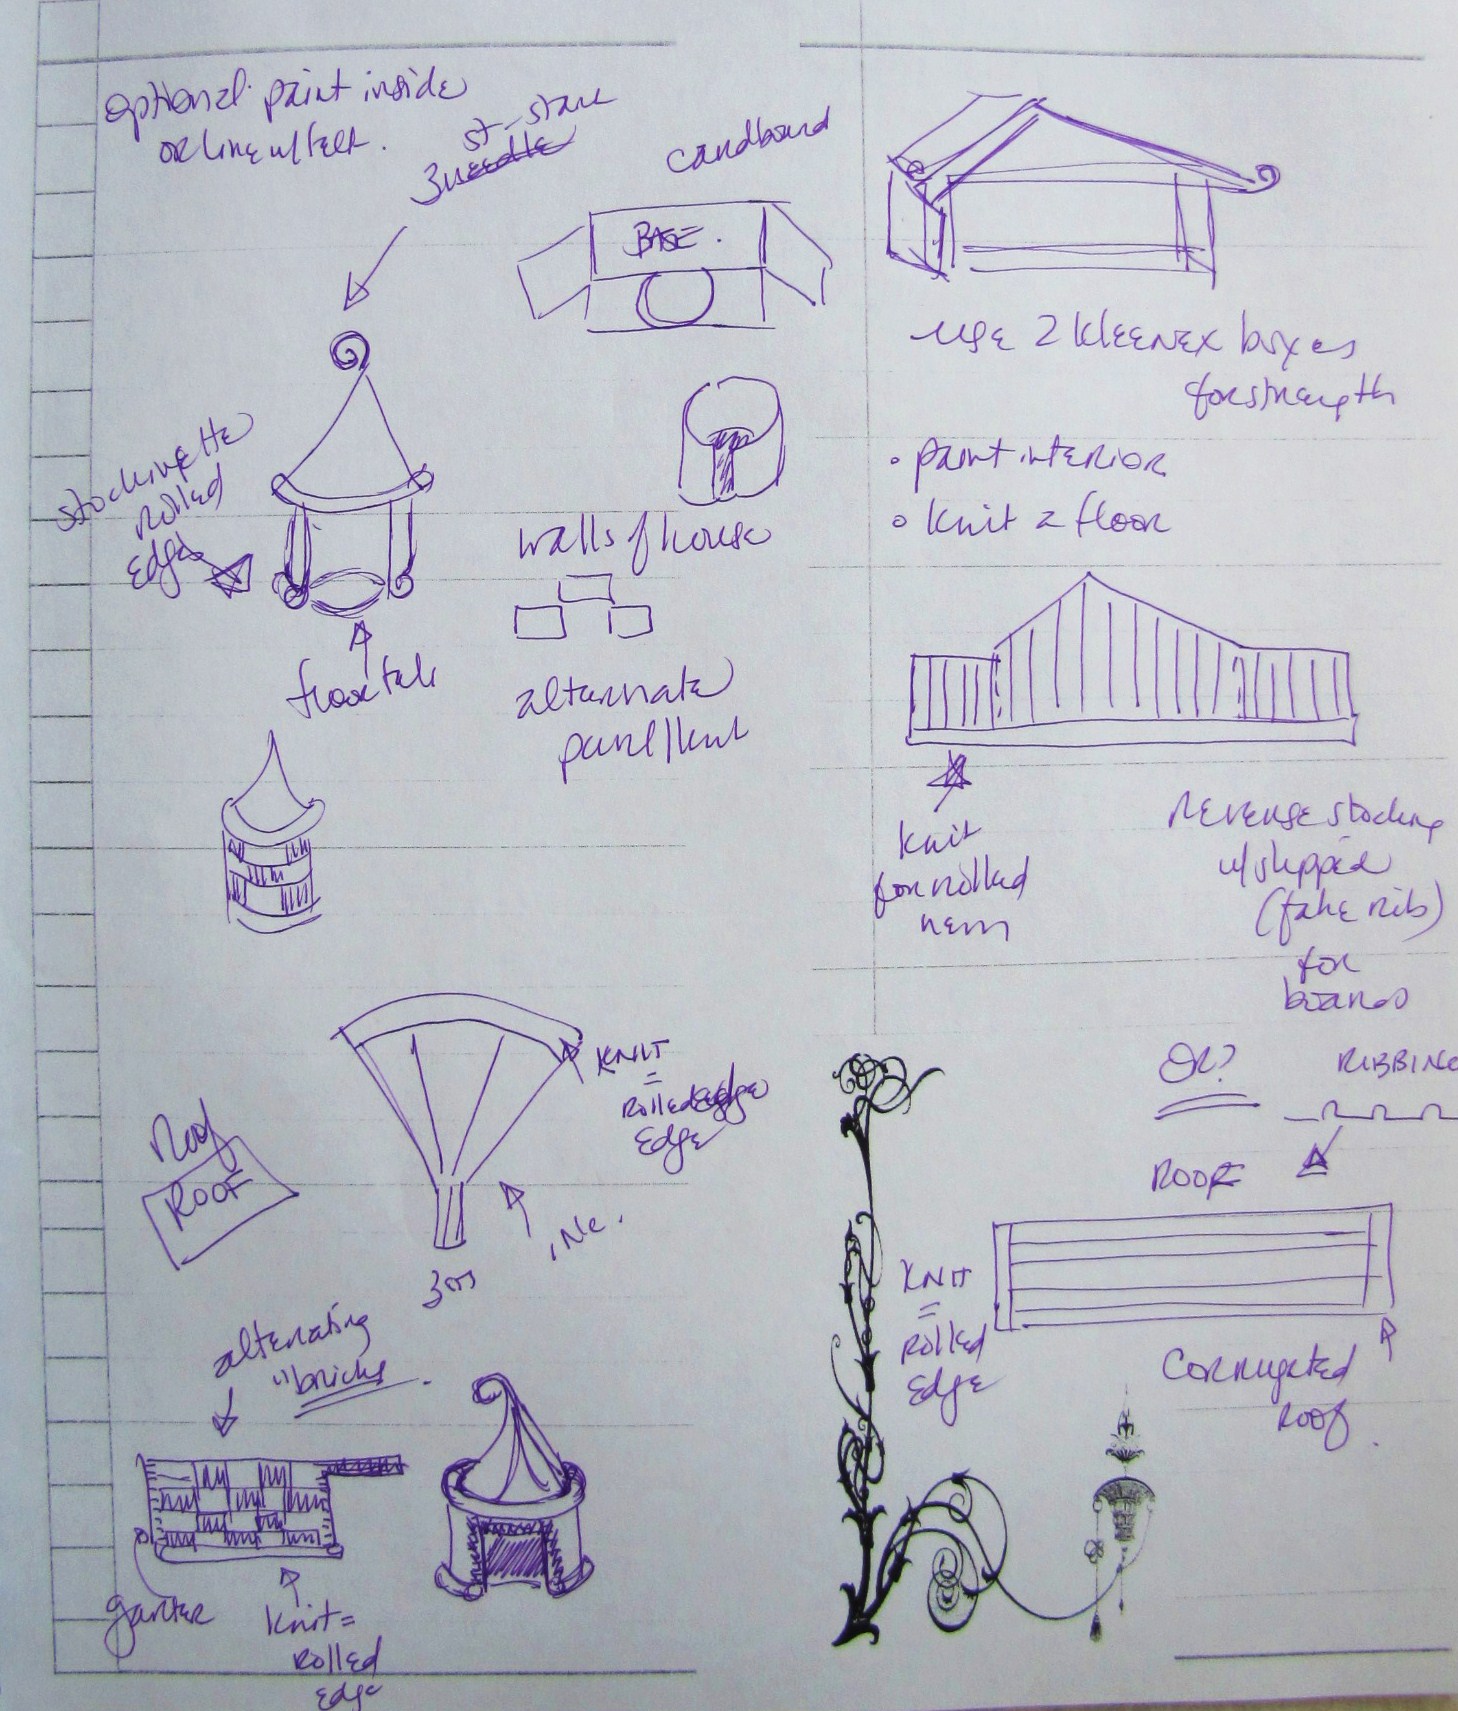 optional: paint inside
or line w/ felt.
3 needle
cardboard
BASE.
use 2 Kleenex boxes
for strength
• paint interior
• knit a floor
stockinette
rolled
edge
walls of house
floor felt
alternate
purl/knit
knit
for rolled
hem
reverse stocking
w/ slipped
(fake rib)
for
boards
KNIT
=
rolled
edge
OR?
RIBBING
ROOF
Roof
ROOF
INC.
KNIT
=
rolled
edge
corrugated
roof.
alternating
"bricks
garter
knit =
rolled
edge